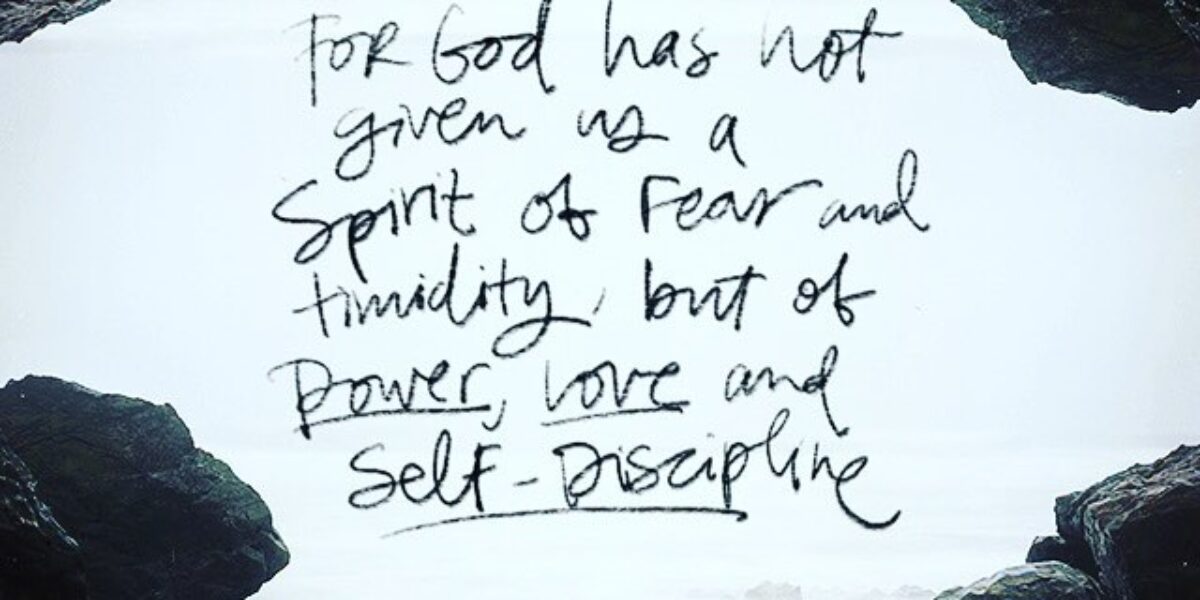 For God has not
given us a
Spirit of Fear and
timidity, but of
power, love and
Self-Discipline